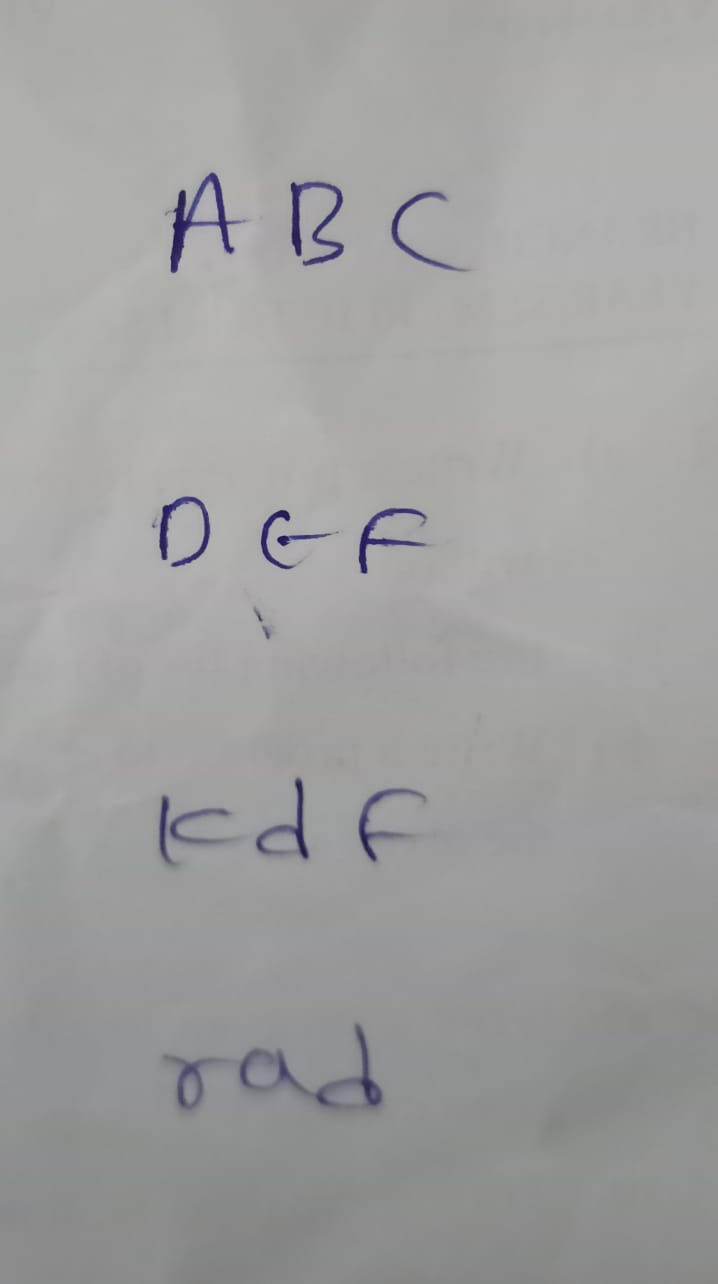 A B C
D E F
K d F
rad